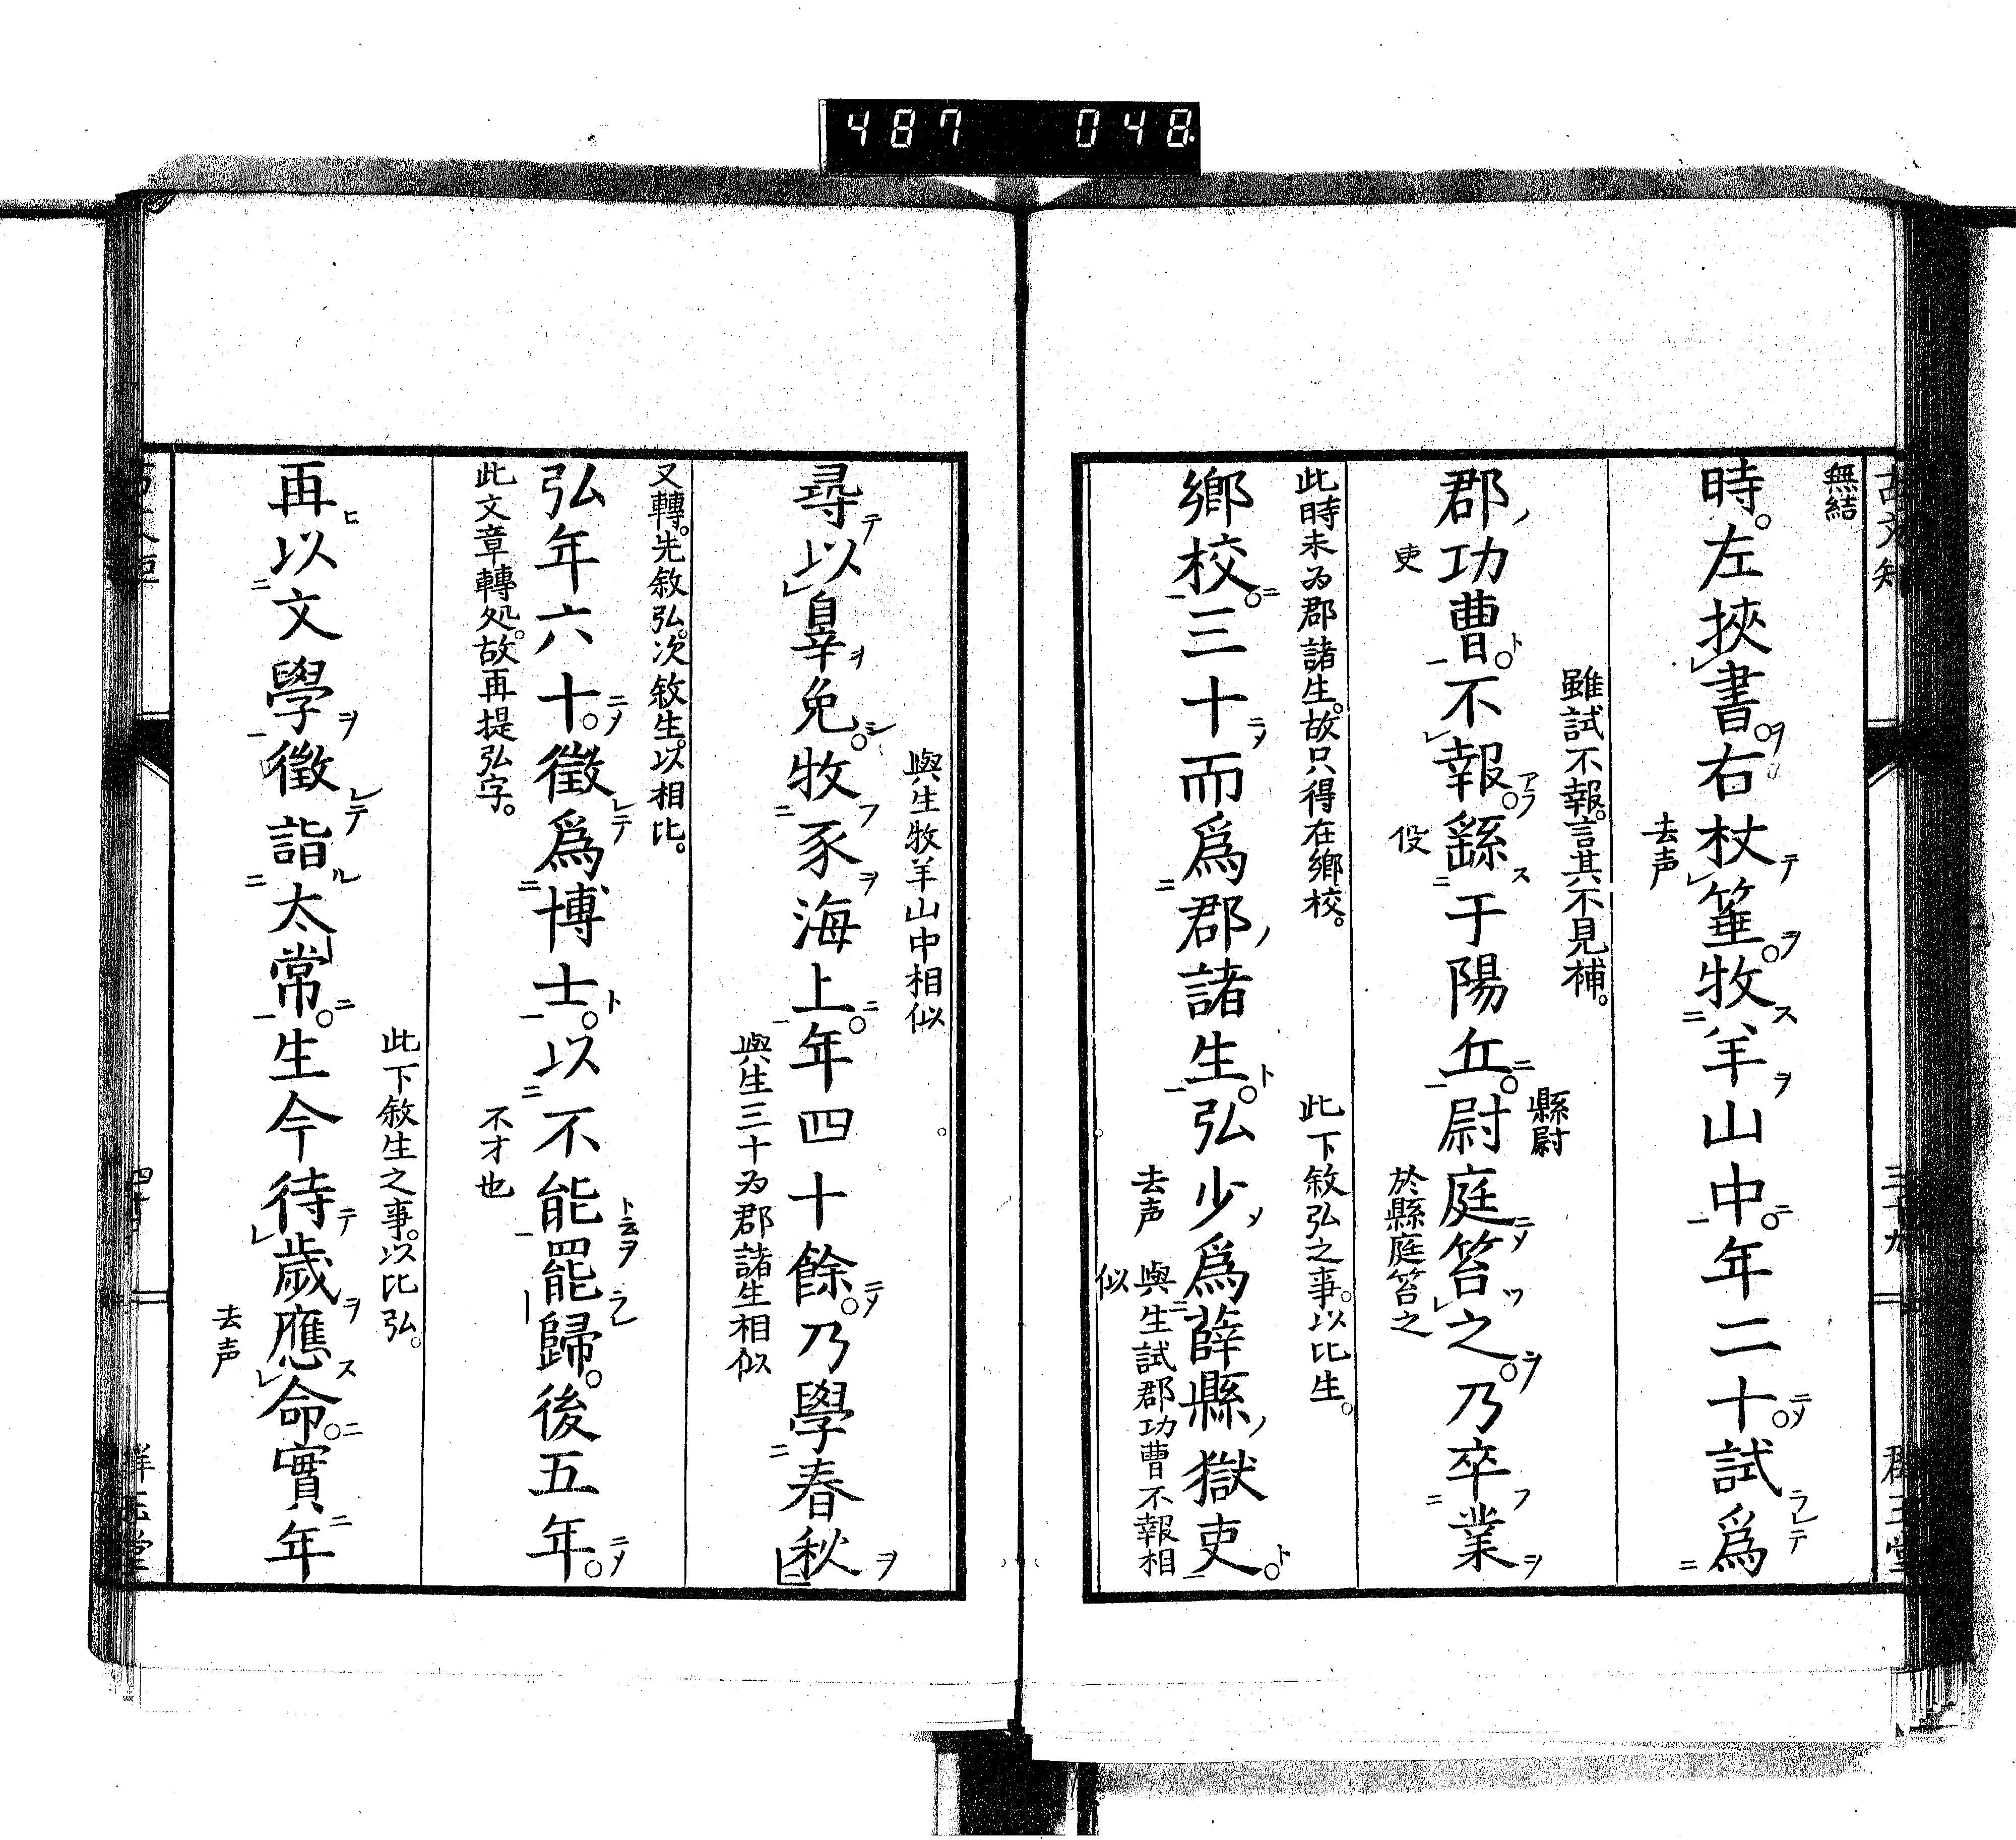 487 048
古文矩
無結
時。左挾書。右杖箠。牧羊山中。年二十。試為
去声
雖試不報。言其不見補。
郡功曹。不報。繇于陽丘。尉庭笞之。乃卒業
吏
役
縣尉
於縣庭笞之
此時未為郡諸生。故只得在鄉校。
此下敘弘之事。以比生。
鄉校。三十而爲郡諸生。弘少爲薛縣獄吏。
去声
與生試郡功曹不報相
似
與生牧羊山中相似
尋以辠免。牧豕海上。年四十餘。乃學春秋
與生三十为郡諸生相似
又轉。先敘弘。次敘生。以相比。
弘年六十。徵爲博士。以不能罷歸。後五年。
此文章轉処。故再提弘字。
不才也
此下敘生之事。以比弘。
再以文學徵詣太常。生今待歲應命。實年
去声